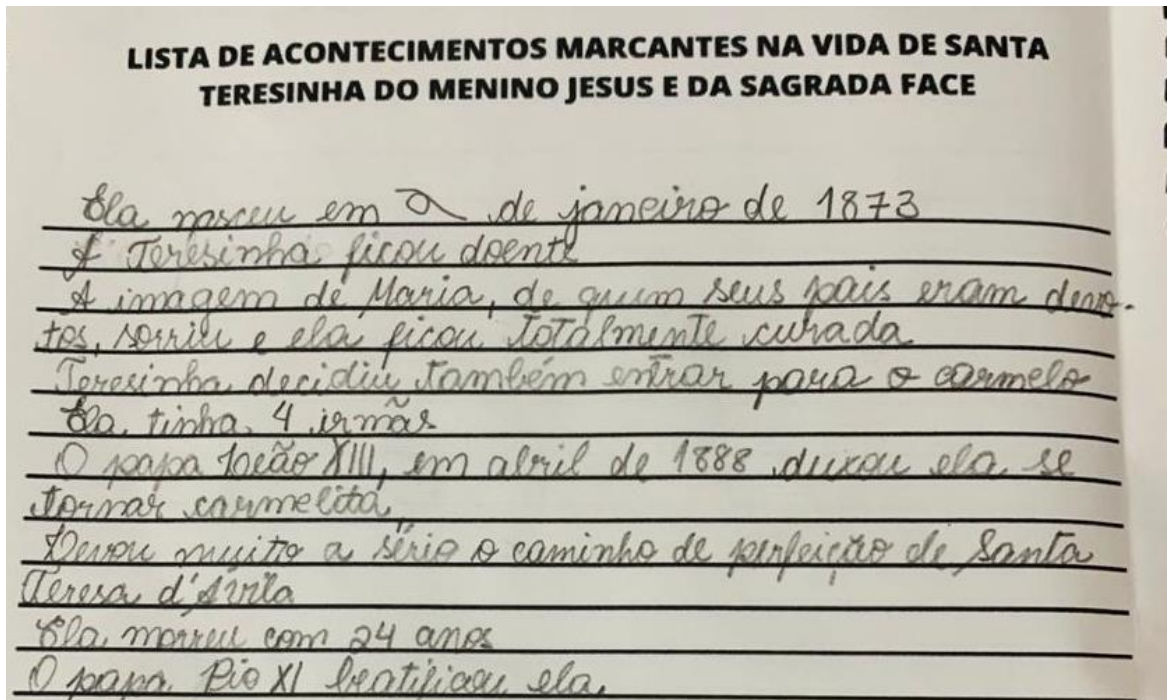 LISTA DE ACONTECIMENTOS MARCANTES NA VIDA DE SANTA
TERESINHA DO MENINO JESUS E DA SAGRADA FACE
Ela nasceu em 2 de janeiro de 1873
A Teresinha ficou doente
A imagem de Maria, de quem seus pais eram devo-
tos, sorriu e ela ficou totalmente curada
Teresinha decidiu também entrar para o carmelo
Ela tinha 4 irmãs
O papa Leão XIII, em abril de 1888 deixou ela se
tornar carmelita,
Levou muito a sério o caminho de perfeição de Santa
Teresa d'Ávila
Ela morreu com 24 anos
O papa Pio XI beatificou ela,